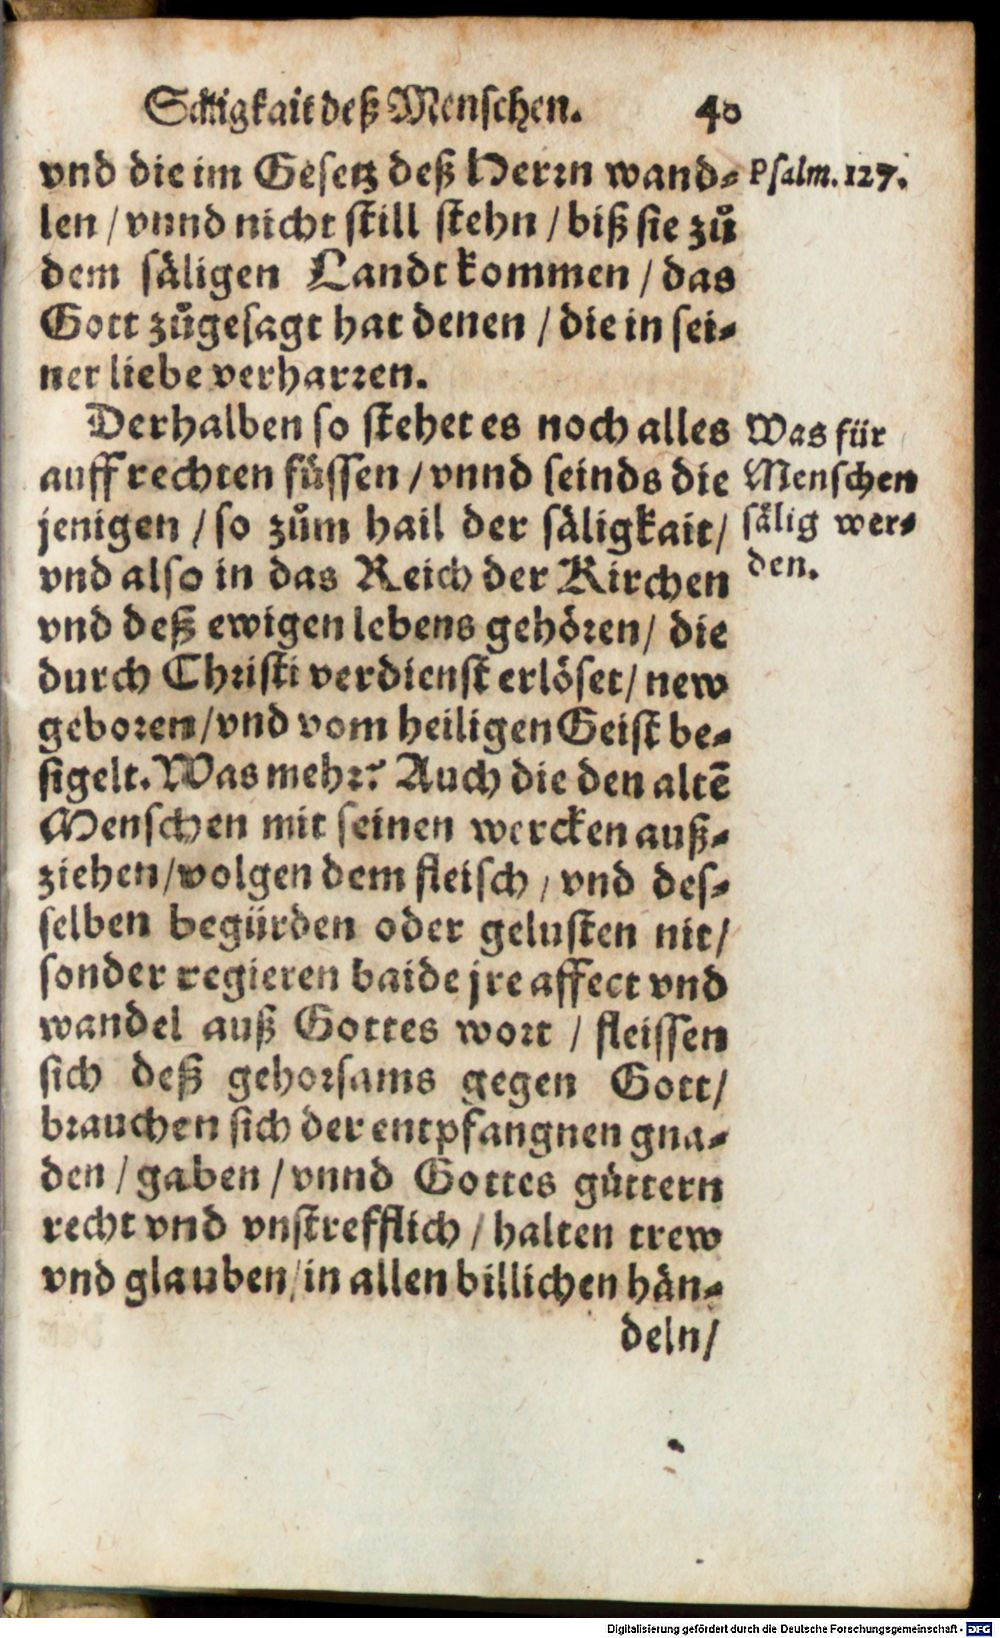 Säligkait deß Menschen. 40
vnd die im Gesetz deß Herrn wand-
Psalm. 127.
len / vnnd nicht still stehn / biß sie zů
dem säligen Landt kommen / das
Gott zůgesagt hat denen / die in sei-
ner liebe verharren.
Derhalben so stehet es noch alles
auff rechten füssen / vnnd seinds die
jenigen / so zům hail der säligkait /
vnd also in das Reich der Kirchen
vnd deß ewigen lebens gehören / die
durch Christi verdienst erlöset / new
geboren / vnd vom heiligen Geist be-
sigelt. Was mehr? Auch die den altē
Menschen mit seinen wercken auß-
ziehen / volgen dem fleisch / vnd des-
selben begürden oder gelusten nit /
sonder regieren baide jre affect vnd
wandel auß Gottes wort / fleissen
sich deß gehorsams gegen Gott /
brauchen sich der entpfangnen gna-
den / gaben / vnnd Gottes güttern
recht vnd vnstrefflich / halten trew
vnd glauben / in allen billichen hän-
deln /
Was für
Menschen
sälig wer-
den.
Digitalisierung gefördert durch die Deutsche Forschungsgemeinschaft - DFG